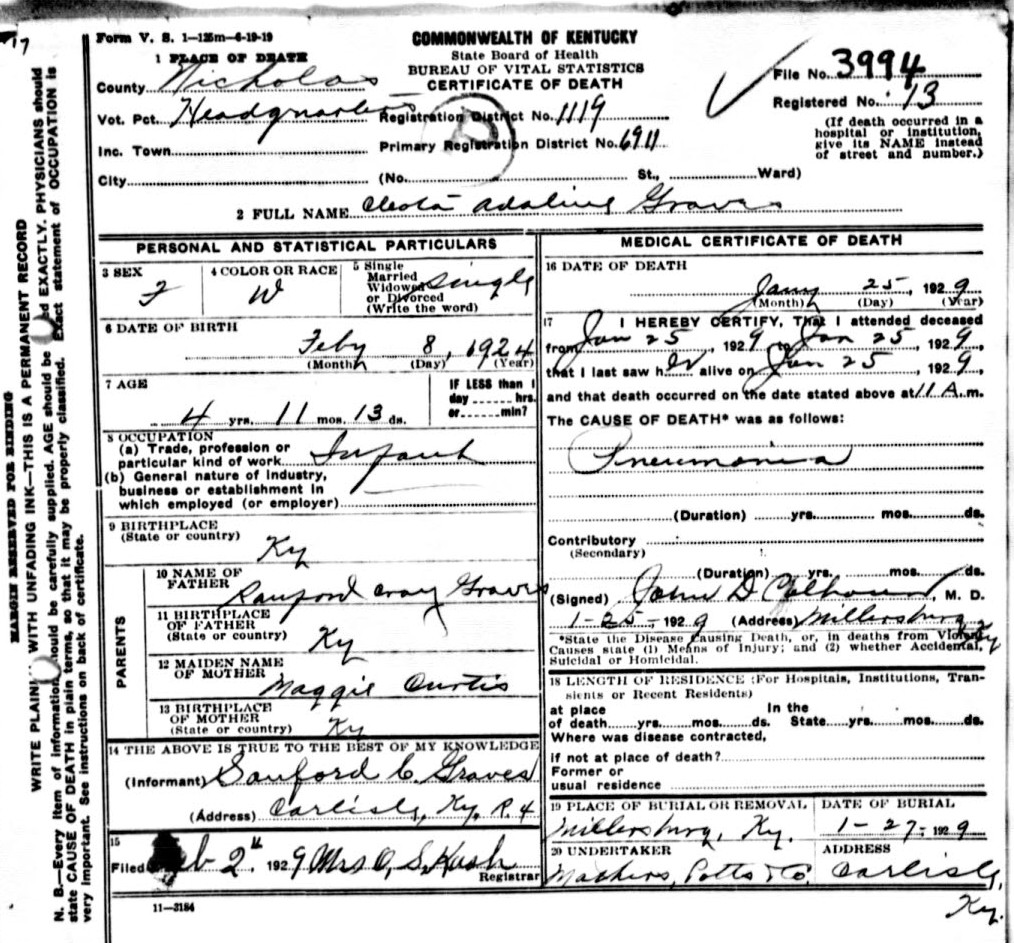 17
Form V. S. 1—125m—6-19-19
COMMONWEALTH OF KENTUCKY
State Board of Health
BUREAU OF VITAL STATISTICS
CERTIFICATE OF DEATH
1 PLACE OF DEATH
County Nicholas
Vot. Pct. Headquarters
Inc. Town
City
Registration District No. 1119
Primary Registration District No. 6911
(No. St., Ward)
File No. 3994
Registered No. 13
(If death occurred in a
hospital or institution,
give its NAME instead
of street and number.)
2 FULL NAME Cleota Adaline Graves
PERSONAL AND STATISTICAL PARTICULARS
3 SEX
F
4 COLOR OR RACE
W
5 Single
Married
Widowed
or Divorced
(Write the word)
Single
6 DATE OF BIRTH
Feby 8, 1924
(Month) (Day) (Year)
7 AGE
4 yrs. 11 mos. 13 ds.
IF LESS than 1
day hrs.
or min?
8 OCCUPATION
(a) Trade, profession or
particular kind of work Infant
(b) General nature of industry,
business or establishment in
which employed (or employer)
9 BIRTHPLACE
(State or country)
Ky
PARENTS
10 NAME OF
FATHER
Sanford Cray Graves
11 BIRTHPLACE
OF FATHER
(State or country)
Ky
12 MAIDEN NAME
OF MOTHER
Maggie Curtis
13 BIRTHPLACE
OF MOTHER
(State or country)
Ky
14 THE ABOVE IS TRUE TO THE BEST OF MY KNOWLEDGE
(Informant) Sanford C. Graves
(Address) Carlisle, Ky. R. 4
15
Filed Feb 2", 1929 Mrs O. S. Kash
Registrar
11—3184
MEDICAL CERTIFICATE OF DEATH
16 DATE OF DEATH
Jany 25, 1929
(Month) (Day) (Year)
17 I HEREBY CERTIFY, That I attended deceased
from Jan 25, 1929 to Jan 25, 1929,
that I last saw her alive on Jan 25, 1929,
and that death occurred on the date stated above at 11 A.m.
The CAUSE OF DEATH* was as follows:
Pneumonia
(Duration) yrs. mos. ds.
Contributory
(Secondary)
(Duration) yrs. mos. ds.
(Signed) John D Calhoun, M. D.
1-25-1929 (Address) Millersburg, Ky
*State the Disease Causing Death, or, in deaths from Violent
Causes state (1) Means of Injury; and (2) whether Accidental,
Suicidal or Homicidal.
18 LENGTH OF RESIDENCE (For Hospitals, Institutions, Tran-
sients or Recent Residents)
at place In the
of death yrs. mos. ds. State yrs. mos. ds.
Where was disease contracted,
if not at place of death?
Former or
usual residence
19 PLACE OF BURIAL OR REMOVAL
Millersburg, Ky.
DATE OF BURIAL
1-27-1929
20 UNDERTAKER
Mathers, Potts & Co.
ADDRESS
Carlisle,
Ky.
MARGIN RESERVED FOR BINDING
WRITE PLAINLY WITH UNFADING INK—THIS IS A PERMANENT RECORD
N. B.—Every item of information should be carefully supplied. AGE should be stated EXACTLY. PHYSICIANS should
state CAUSE OF DEATH in plain terms, so that it may be properly classified. Exact statement of OCCUPATION is
very important. See instructions on back of certificate.